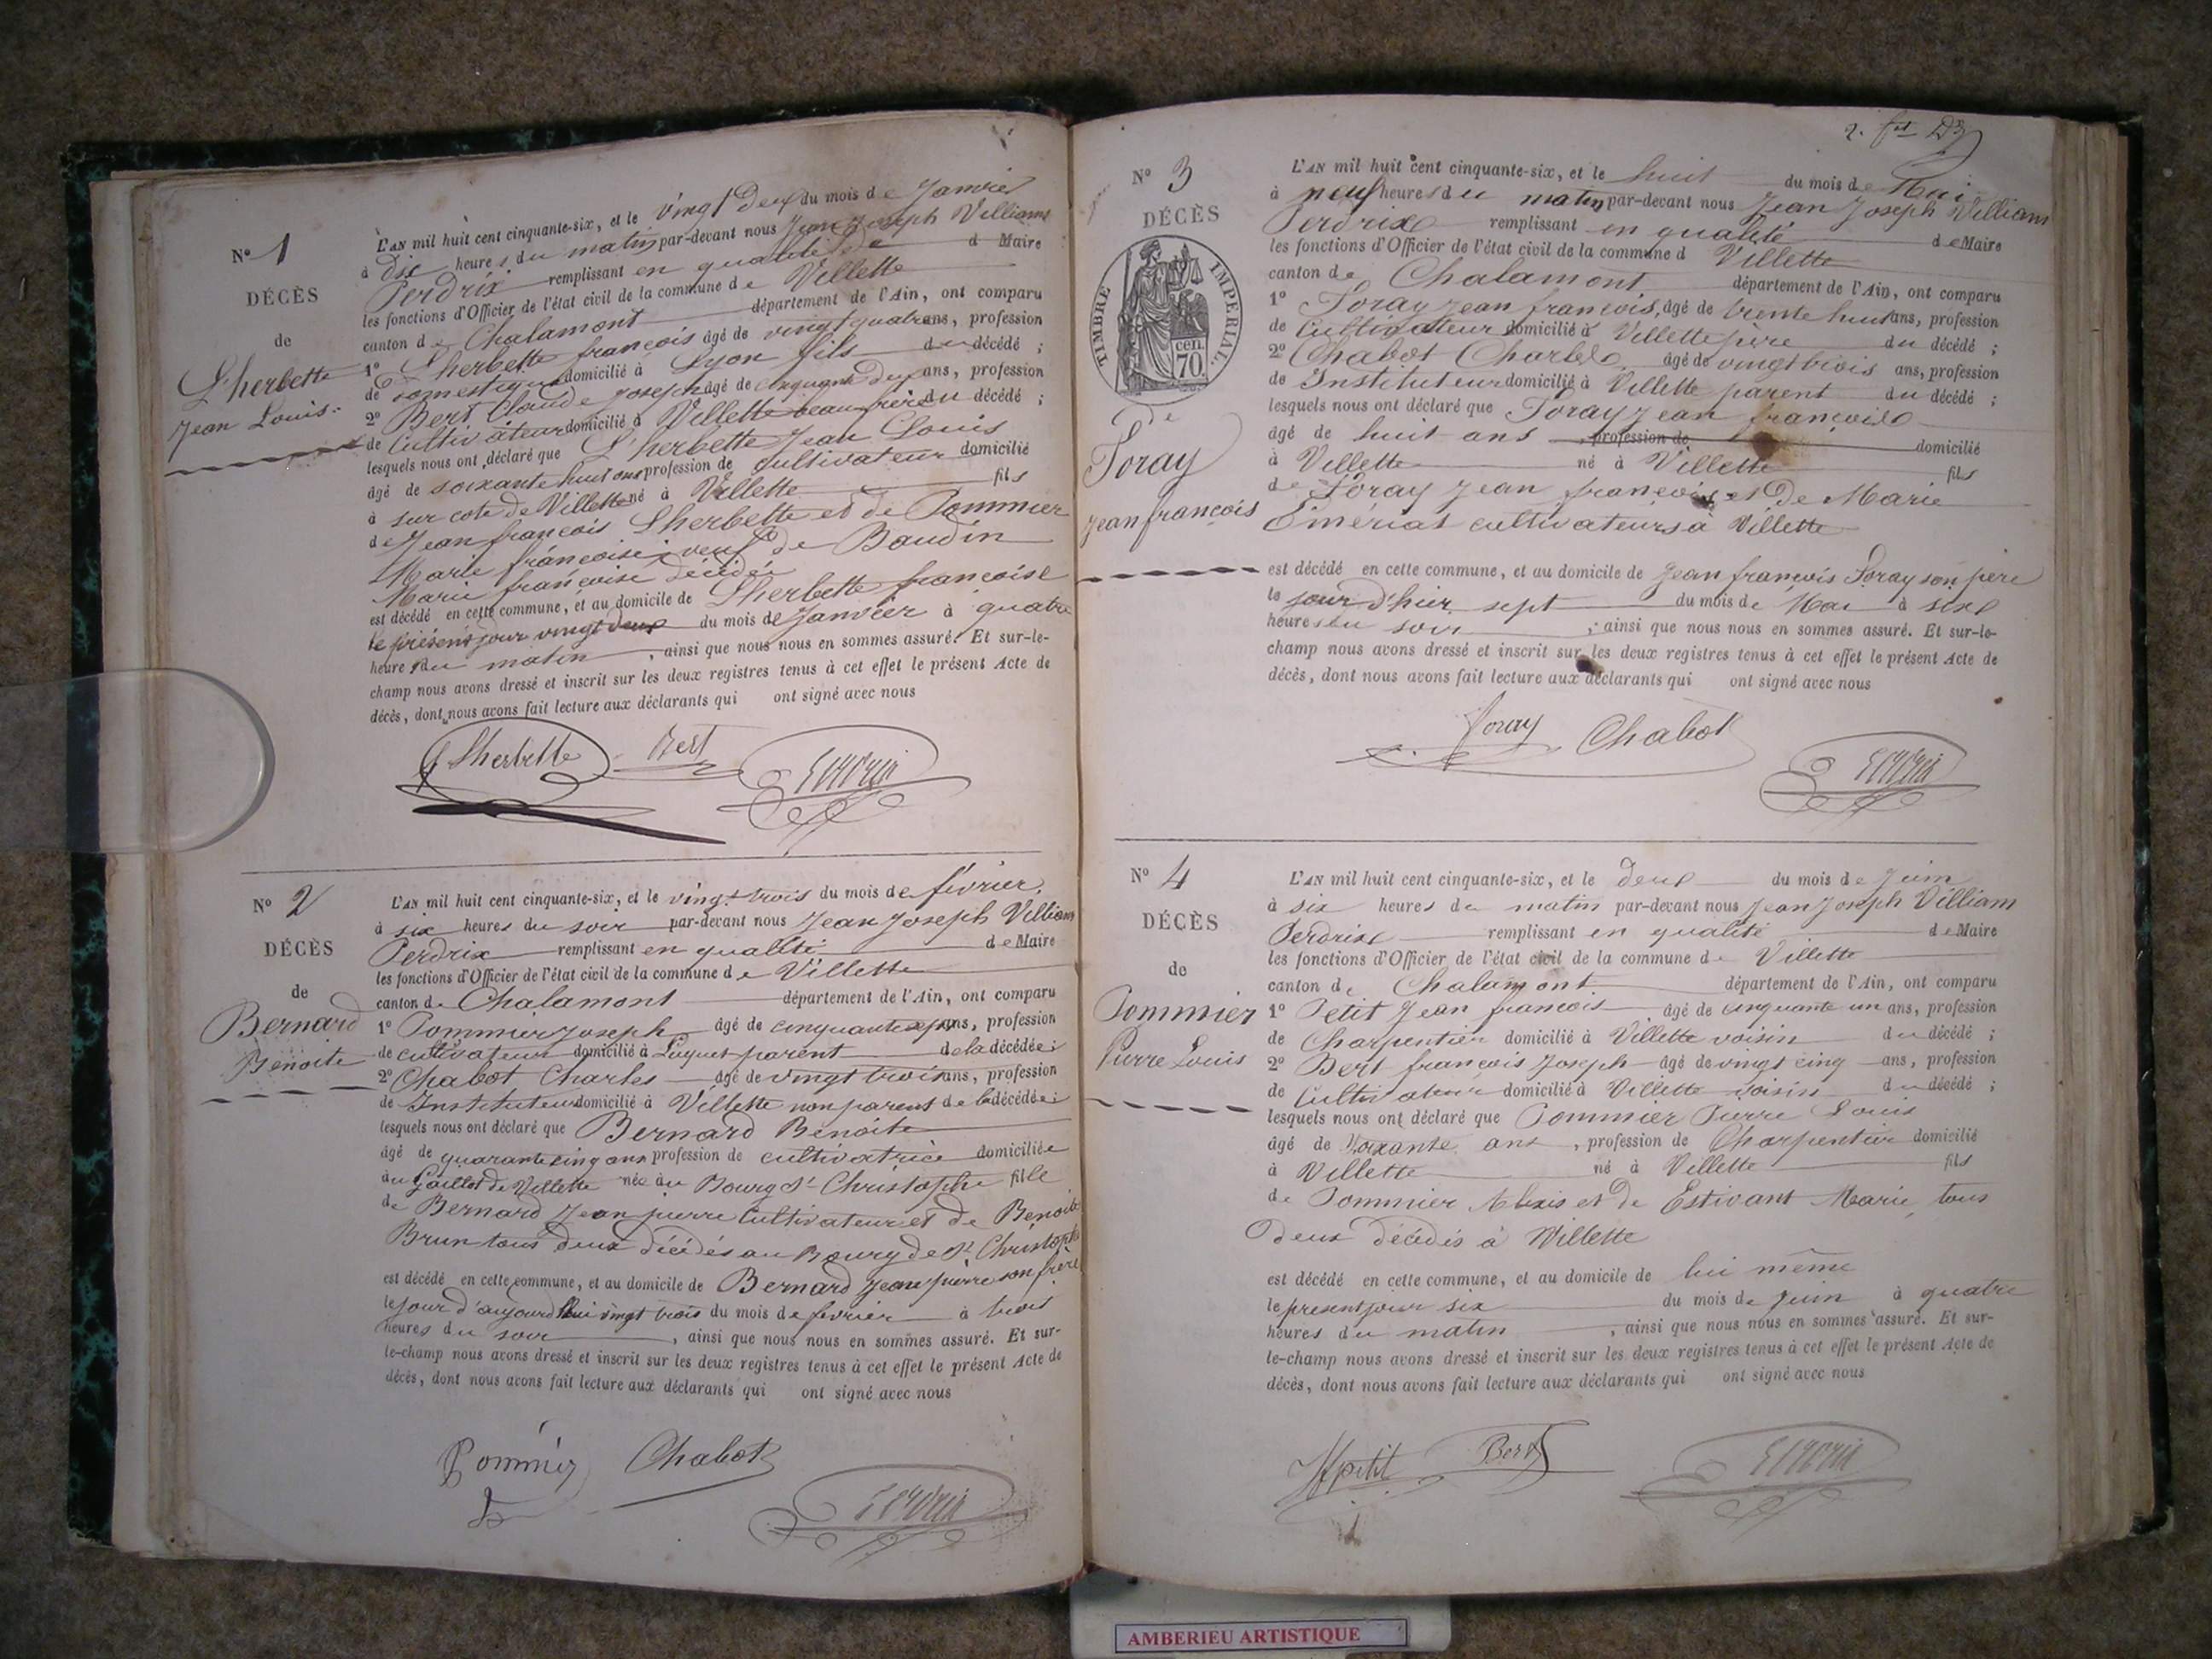 Nº 1
DÉCÈS
de
L'herbette
Jean Louis
L'AN mil huit cent cinquante-six, et le vingt Deux du mois de Janvier
à dix heures du matin par-devant nous Jean Joseph Villiams
Perdrix remplissant en qualité de d Maire
les fonctions d'Officier de l'état civil de la commune de Villette
canton de Chalamont département de l'Ain, ont comparu
1º Lherbette françois âgé de vingt quatre ans, profession
de domestique domicilié à Lyon fils du décédé ;
2º Bert Claude Joseph âgé de cinquante deux ans, profession
de Cultivateur domicilié à Villette beau frère du décédé ;
lesquels nous ont déclaré que L'herbette Jean Louis
âgé de soixante huit ans profession de cultivateur domicilié
à sur cote de Villette né à Villette fils
de Jean françois Lherbette et de Pommier
Marie françoise, veuf de Baudin
Marie françoise décédée
est décédé en cette commune, et au domicile de Lherbette françoise
le présent jour vingt deux du mois de Janvier à quatre
heures du matin, ainsi que nous nous en sommes assuré. Et sur-le-
champ nous avons dressé et inscrit sur les deux registres tenus à cet effet le présent Acte de
décès, dont nous avons fait lecture aux déclarants qui ont signé avec nous
Lherbette Bert Perdrix
Nº 2
DÉCÈS
de
Bernard
Benoite
L'AN mil huit cent cinquante-six, et le vingt trois du mois de février
à six heures du soir par-devant nous Jean Joseph Villiams
Perdrix remplissant en qualité de Maire
les fonctions d'Officier de l'état civil de la commune de Villette
canton de Chalamont département de l'Ain, ont comparu
1º Pommier Joseph âgé de cinquante sept ans, profession
de cultivateur domicilié à parent de la décédée ;
2º Chabot Charles âgé de vingt trois ans, profession
de Instituteur domicilié à Villette non parent de la décédée ;
lesquels nous ont déclaré que Bernard Benoite
âgé de quarante cinq ans profession de cultivatrice domiciliée
au Gaillot de Villette née au Bourg St Christophe fille
de Bernard Jean pierre Cultivateur et de Benoite
Brun tous deux décédés au Bourg de St Christophe
est décédé en cette commune, et au domicile de Bernard Jean pierre son frère
le jour d'aujourd'hui vingt trois du mois de février à trois
heures du soir, ainsi que nous nous en sommes assuré. Et sur-
le-champ nous avons dressé et inscrit sur les deux registres tenus à cet effet le présent Acte de
décès, dont nous avons fait lecture aux déclarants qui ont signé avec nous
Pommier Chabot
Perdrix
Nº 3
DÉCÈS
TIMBRE IMPERIAL
70 cen.
De
Foray
Jean françois
L'AN mil huit cent cinquante-six, et le huit du mois de Mai
à neuf heures du matin par-devant nous Jean Joseph Villiam
Perdrix remplissant en qualité de Maire
les fonctions d'Officier de l'état civil de la commune d Villette
canton de Chalamont département de l'Ain, ont comparu
1º Foray Jean françois, âgé de trente huit ans, profession
de Cultivateur domicilié à Villette père du décédé ;
2º Chabot Charles âgé de vingt trois ans, profession
de Instituteur domicilié à Villette parent du décédé ;
lesquels nous ont déclaré que Foray Jean françois
âgé de huit ans, profession de domicilié
à Villette né à Villette fils
de Foray Jean françois et De Marie
Eimériat cultivateurs à Villette
est décédé en cette commune, et au domicile de Jean françois Foray son père
le jour d'hier sept du mois de Mai à six
heures du soir, ainsi que nous nous en sommes assuré. Et sur-le-
champ nous avons dressé et inscrit sur les deux registres tenus à cet effet le présent Acte de
décès, dont nous avons fait lecture aux déclarants qui ont signé avec nous
foray Chabot
Perdrix
Nº 4
DÉCÈS
de
Pommier
Pierre Louis
L'AN mil huit cent cinquante-six, et le deux du mois de Juin
à six heures du matin par-devant nous Jean Joseph Villiam
Perdrix remplissant en qualité de Maire
les fonctions d'Officier de l'état civil de la commune de Villette
canton de Chalamont département de l'Ain, ont comparu
1º Petit Jean francois âgé de cinquante un ans, profession
de Charpentier domicilié à Villette voisin du décédé ;
2º Bert françois Joseph âgé de vingt cinq ans, profession
de Cultivateur domicilié à Villette voisin du décédé ;
lesquels nous ont déclaré que Pommier Pierre Louis
âgé de Soixante ans, profession de Charpentier domicilié
à Villette né à Villette fils
de Pommier Alexis et de Estivant Marie, tous
deux décédés à Villette
est décédé en cette commune, et au domicile de lui même
le présent jour six du mois de Juin à quatre
heures du matin, ainsi que nous nous en sommes assuré. Et sur-
le-champ nous avons dressé et inscrit sur les deux registres tenus à cet effet le présent Acte de
décès, dont nous avons fait lecture aux déclarants qui ont signé avec nous
petit Bert Perdrix
AMBERIEU ARTISTIQUE